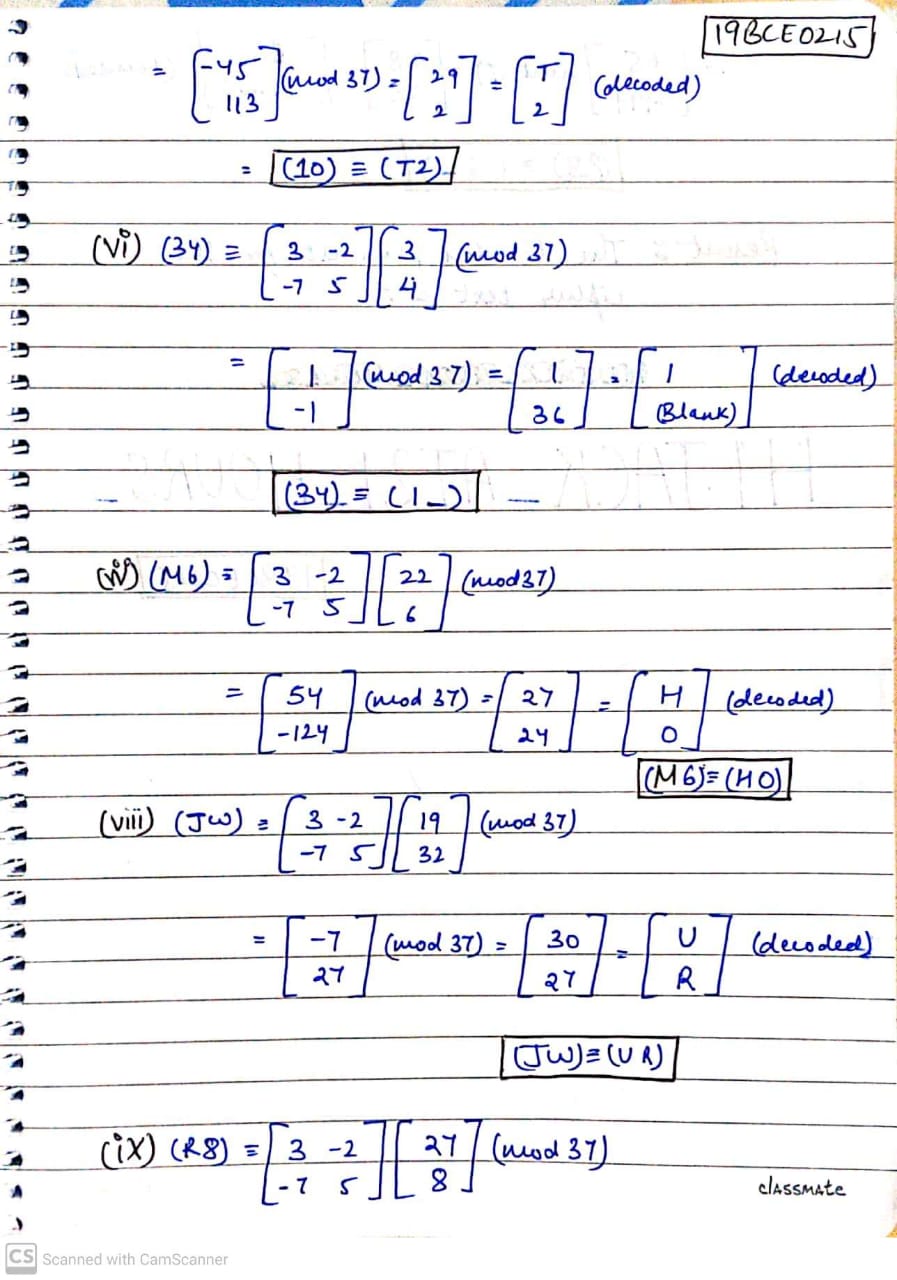 19BCE0215
= [-45 113] (mod 37) = [29 2] = [T 2] (decoded)
= (10) ≡ (T2)
(vi) (34) ≡ [3 -2 -7 5] [3 4] (mod 37)
= [1 -1] (mod 37) = [1 36] = [1 (Blank)] (decoded)
(34) ≡ (1_)
(vii) (M6) = [3 -2 -7 5] [22 6] (mod 37)
= [54 -124] (mod 37) = [27 24] = [H O] (decoded)
(M6) ≡ (HO)
(viii) (JW) = [3 -2 -7 5] [19 32] (mod 37)
= [-7 27] (mod 37) = [30 27] = [U R] (decoded)
(JW) ≡ (UR)
(ix) (R8) = [3 -2 -7 5] [27 8] (mod 37)
classmate
CS Scanned with CamScanner